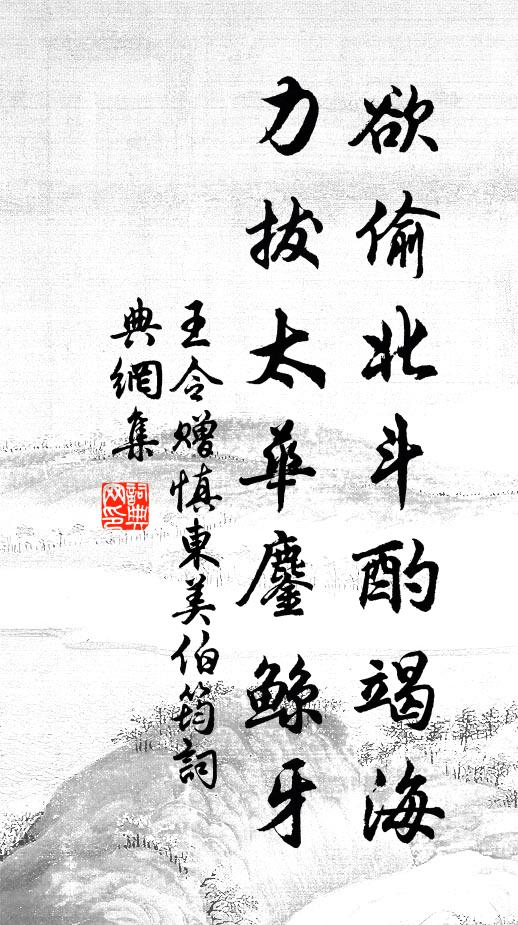 欲偷北斗酌竭海
力拔太華鏖鲸牙
王令赠慎東美伯筠詞
典網集
詞典
网印